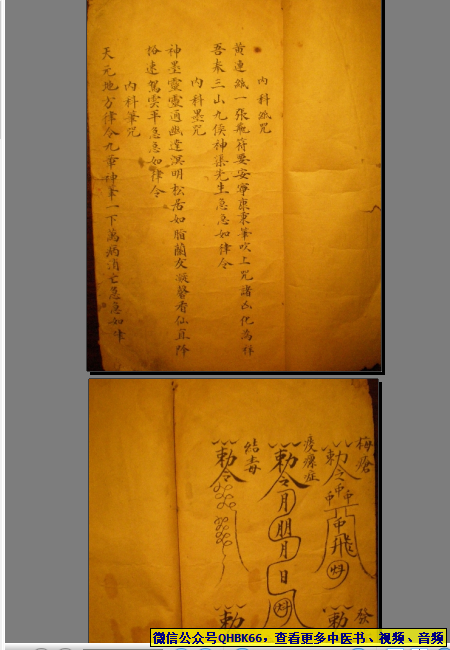 内科紙咒
黄連紙一張飛符要安寧康秉筆吹上咒諸凶化為祥
吾奉三山九侯神先生急急如律令
内科墨咒
神墨靈靈通幽達溟明松居如脂蘭友凝馨香仙降
速駕雲急急如律令
内科筆咒
天元地方律令九章神筆一下萬病消亡急急如律
梅瘡
勅令
飛
瘰症
勅令
月
朋
月
日
結毒
勅令
發
勅
勅
微信公众号QHBK66，查看更多中医书、视频、音频